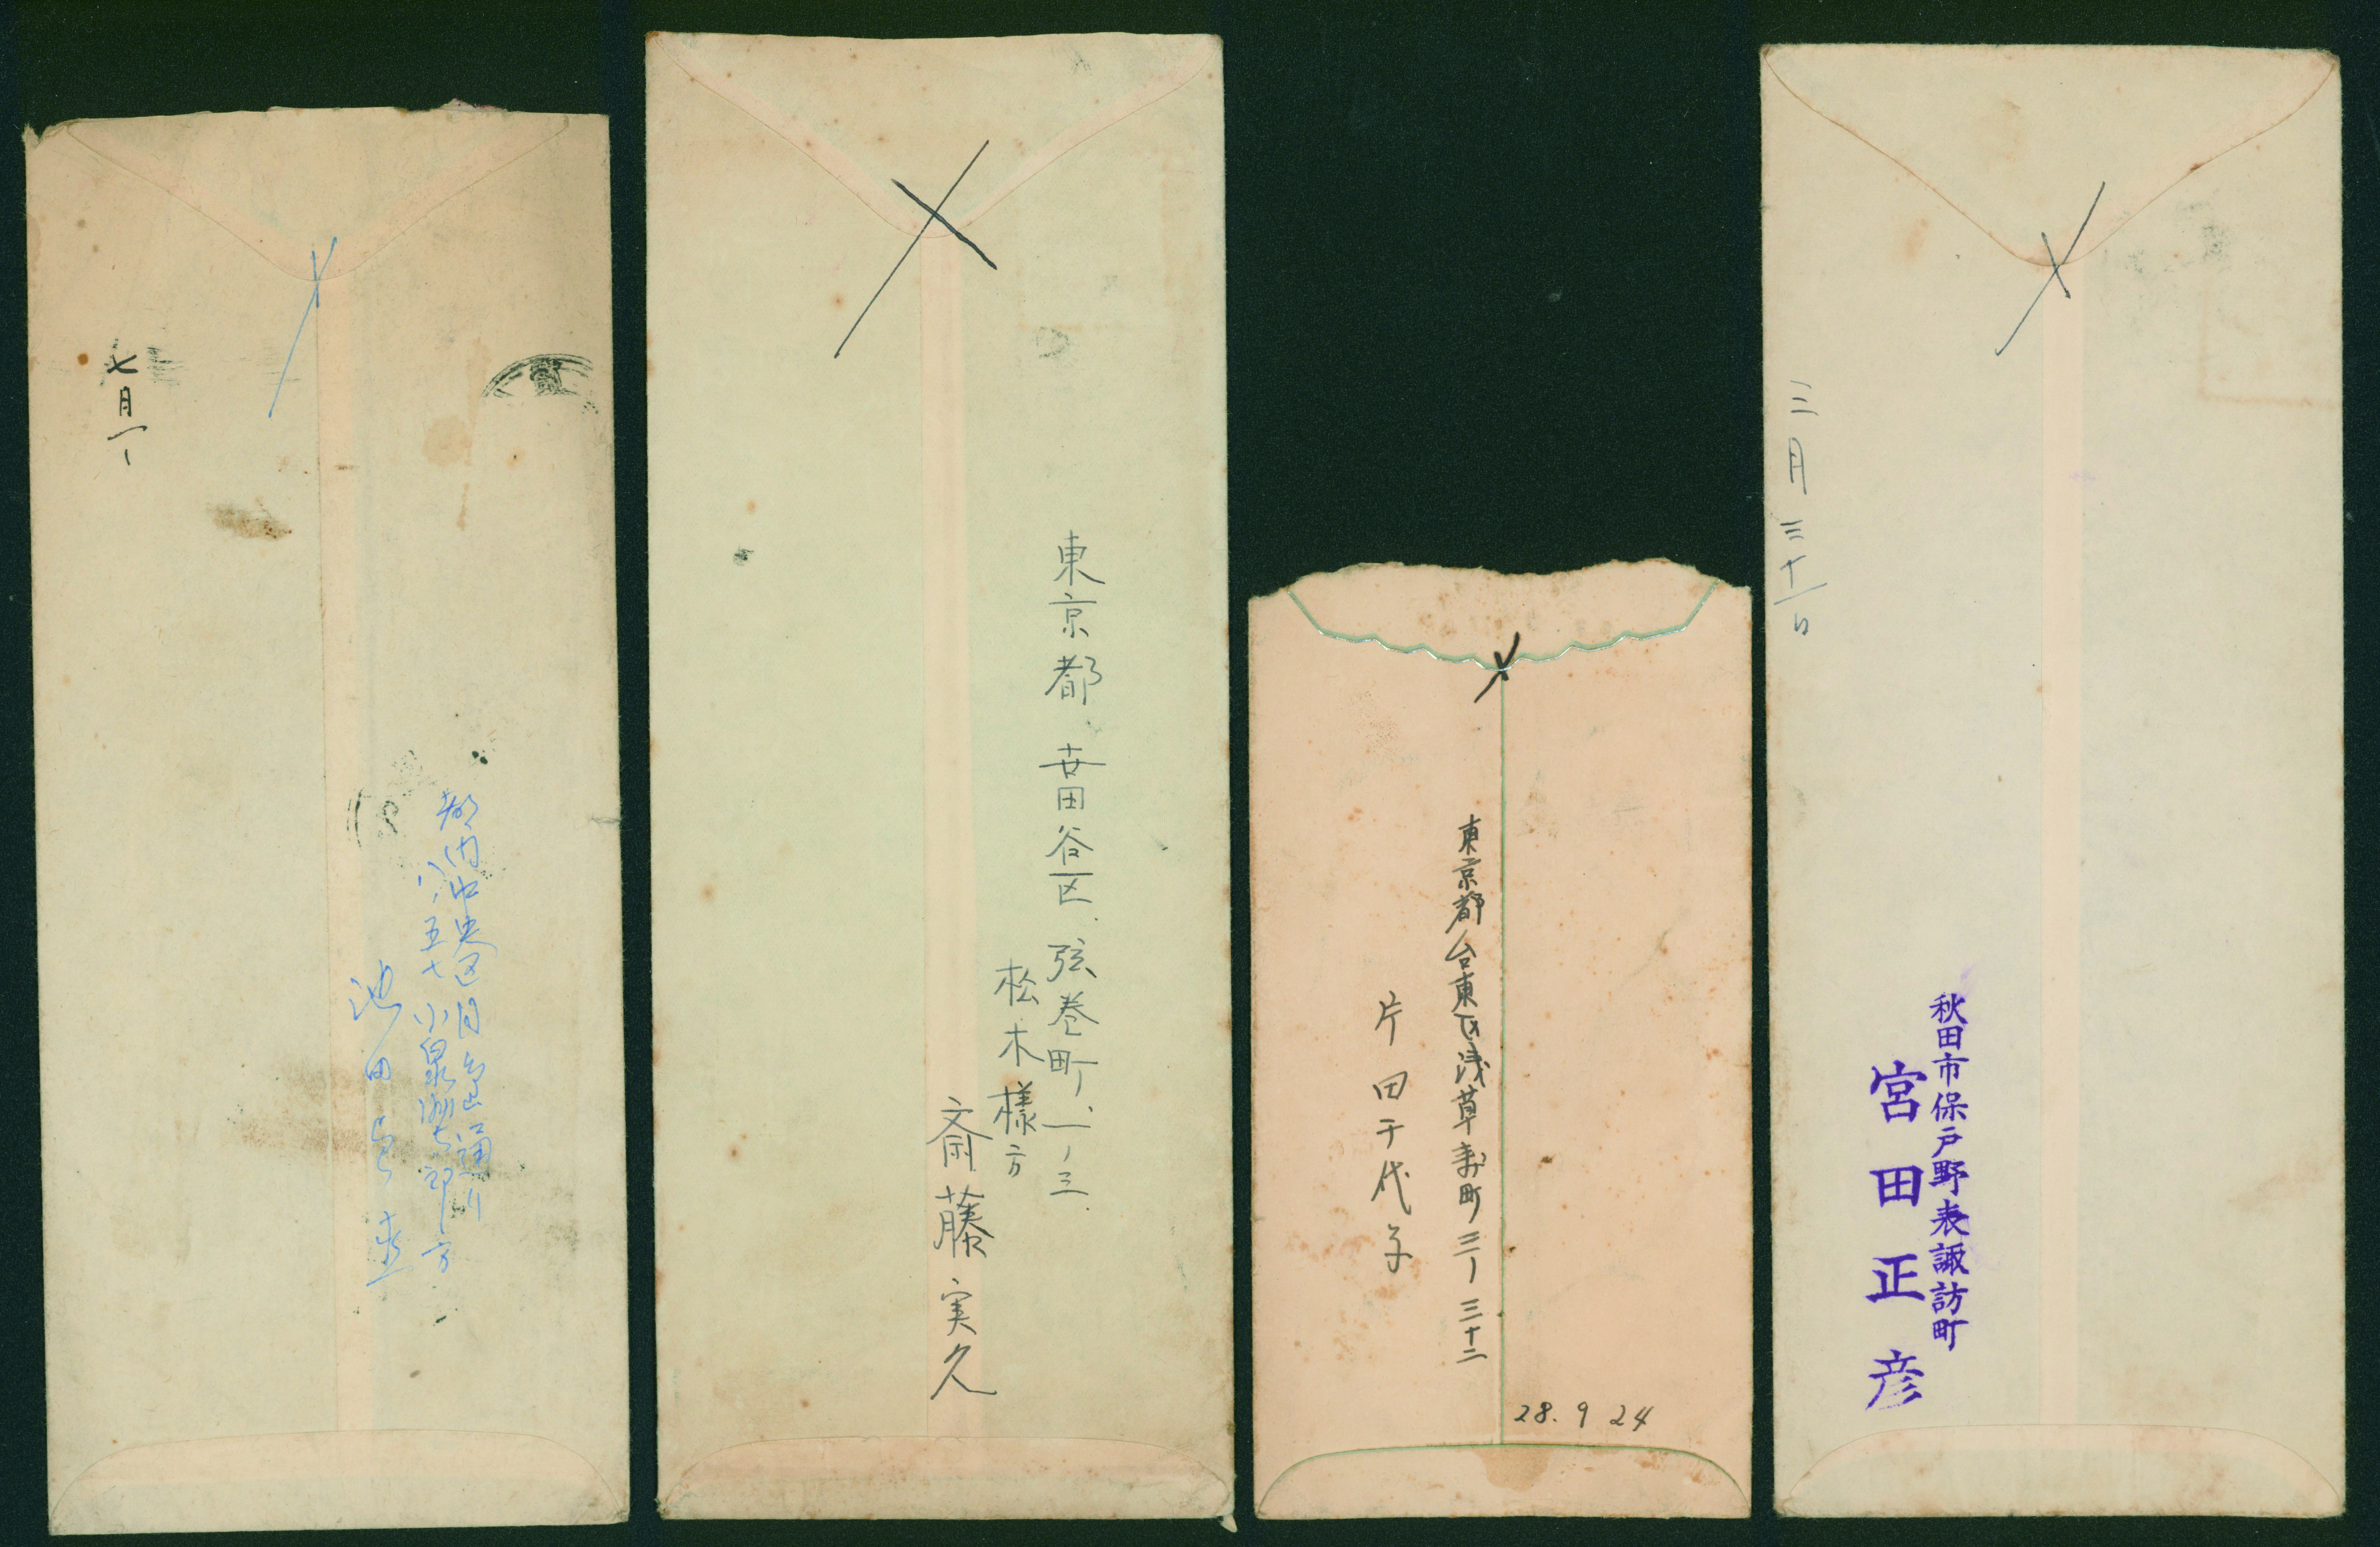 七月一
都内中央区月島通り
八ノ五七 小泉
方
池田
東京都 世田谷区 弦巻町、一ノ三
松木様方
斎藤実久
東京都台東区浅草寿町三ノ三十二
片田千代子
28. 9 24
三月三十一日
秋田市保戸野表諏訪町
宮田正彦